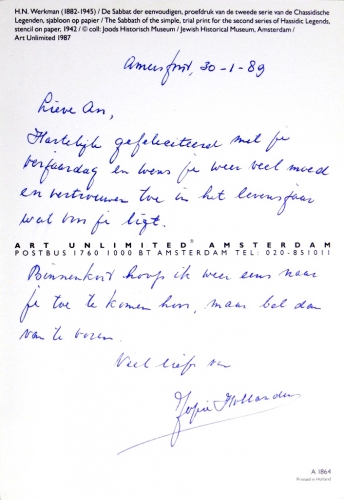 H.N. Werkman (1882-1945) / De Sabbat der eenvoudigen, proefdruk van de tweede serie van de Chassidische
Legenden, sjabloon op papier / The Sabbath of the simple, trial print for the second series of Hassidic Legends,
stencil on paper, 1942 / © coll: Joods Historisch Museum / Jewish Historical Museum, Amsterdam /
Art Unlimited 1987
Amersfoort, 30-1-89
Lieve An,
Hartelijk gefeliciteerd met je
verjaardag en wens je weer veel moed
en vertrouwen toe in het levensjaar
wat voor je ligt.
ART UNLIMITED® AMSTERDAM
POSTBUS 1760 1000 BT AMSTERDAM TEL: 020-851011
Binnenkort hoop ik weer eens naar
je toe te komen hoor, maar bel dan
van te voren.
Veel liefs van
A 1864
Printed in Holland